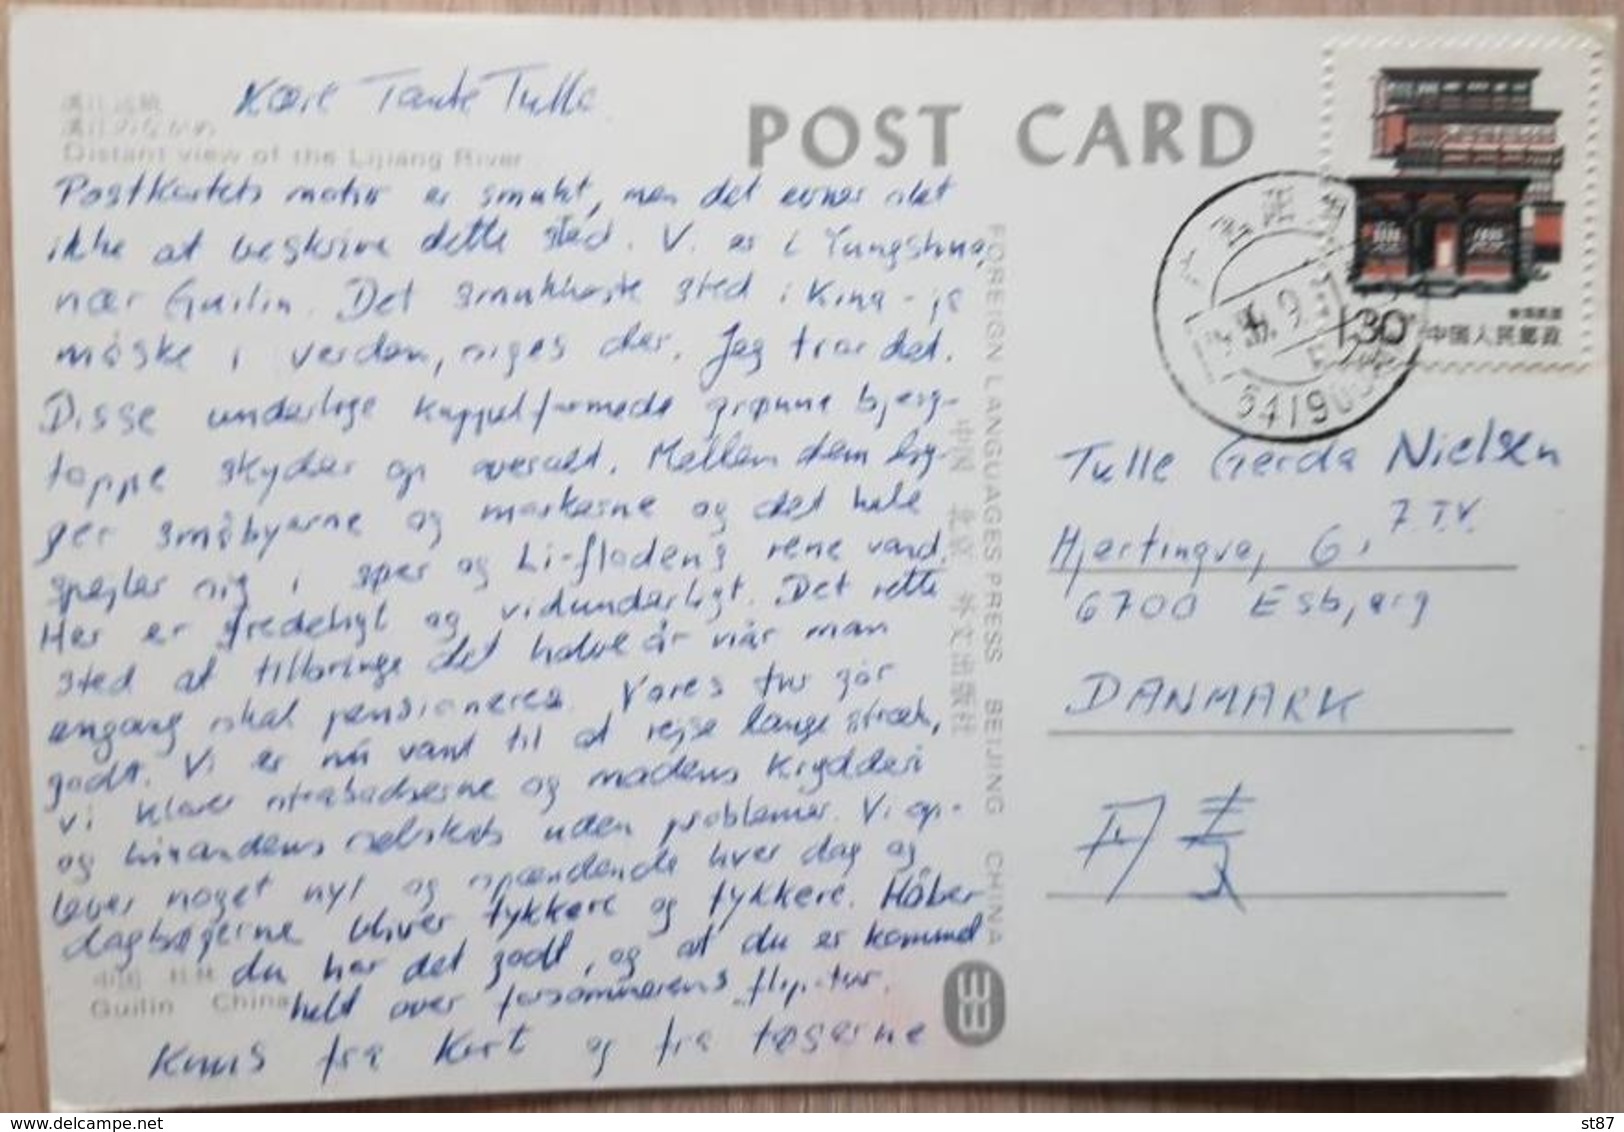 漓江远眺
漓江のながめ
Distant view of the Lijiang River
POST CARD
Kære Tante Tulle
Postkortets motiv er smukt, men det evner slet
ikke at beskrive dette sted. Vi er i Yungshuo,
nær Guilin. Det smukkeste sted i Kina - ja
måske i verden, siges der. Jeg tror det.
Disse underlige kuppelformede grønne bjerg-
toppe skyder op overalt. Mellem dem lig-
ger småbyerne og markerne og det hele
spejler sig i søer og Li-flodens rene vand.
Her er fredeligt og vidunderligt. Det rette
sted at tilbringe det halve år når man
engang skal pensioneres. Vores tur går
godt. Vi er nu vant til at rejse lange stræk,
vi klarer strabadserne og madens krydderi
og hinandens selskab uden problemer. Vi op-
lever noget nyt og spændende hver dag og
dagbøgerne bliver tykkere og tykkere. Håber
du har det godt, og at du er kommet
helt over forsommerens flip-tur.
Knus fra Kurt og fra tøserne
中国 桂林
Guilin China
FOREIGN LANGUAGES PRESS BEIJING CHINA
中国 北京 外文出版社
1.30
中国人民邮政
Tulle Gerda Nielsen
Hjertingvej 6, 7.T.V.
6700 Esbjerg
DANMARK
丹麦
st87